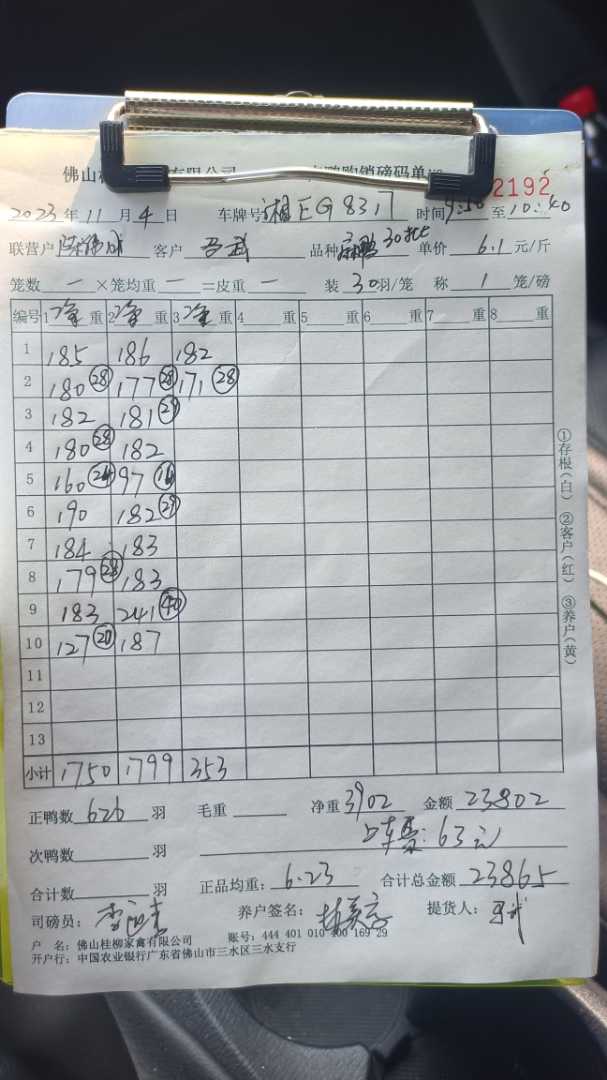 佛山桂 有限公司 鸭购销磅码单 №
2192
2023年11月4日 车牌号 湘EG8317 时间 9:50 至10:40
联营户 客户 马武 品种 30批 单价 6.1 元/斤
笼数 一 ×笼均重 一 =皮重 一 装 30羽/笼 称 1 笼/磅
编号 1净重 2净重 3净重 4 重 5 重 6 重 7 重 8 重
1 185 186 182
2 180 (28) 177 (28) 171 (28)
3 182 181 (29)
4 180 (28) 182
5 160 (24) 97 (16)
6 190 182 (29)
7 184 183
8 179 (28) 183
9 183 241 (40)
10 127 (20) 187
11
12
13
小计 1750 1799 353
①存根(白) ②客户(红) ③养户(黄)
正鸭数 626 羽 毛重 净重 3902 金额 23802
上车费:63元
次鸭数 羽
合计数 羽 正品均重: 6.23 合计总金额 23865
司磅员: 养户签名: 提货人: 马武
户 名: 佛山桂柳家禽有限公司 账号: 444 401 010 400 169 29
开户行: 中国农业银行广东省佛山市三水区三水支行